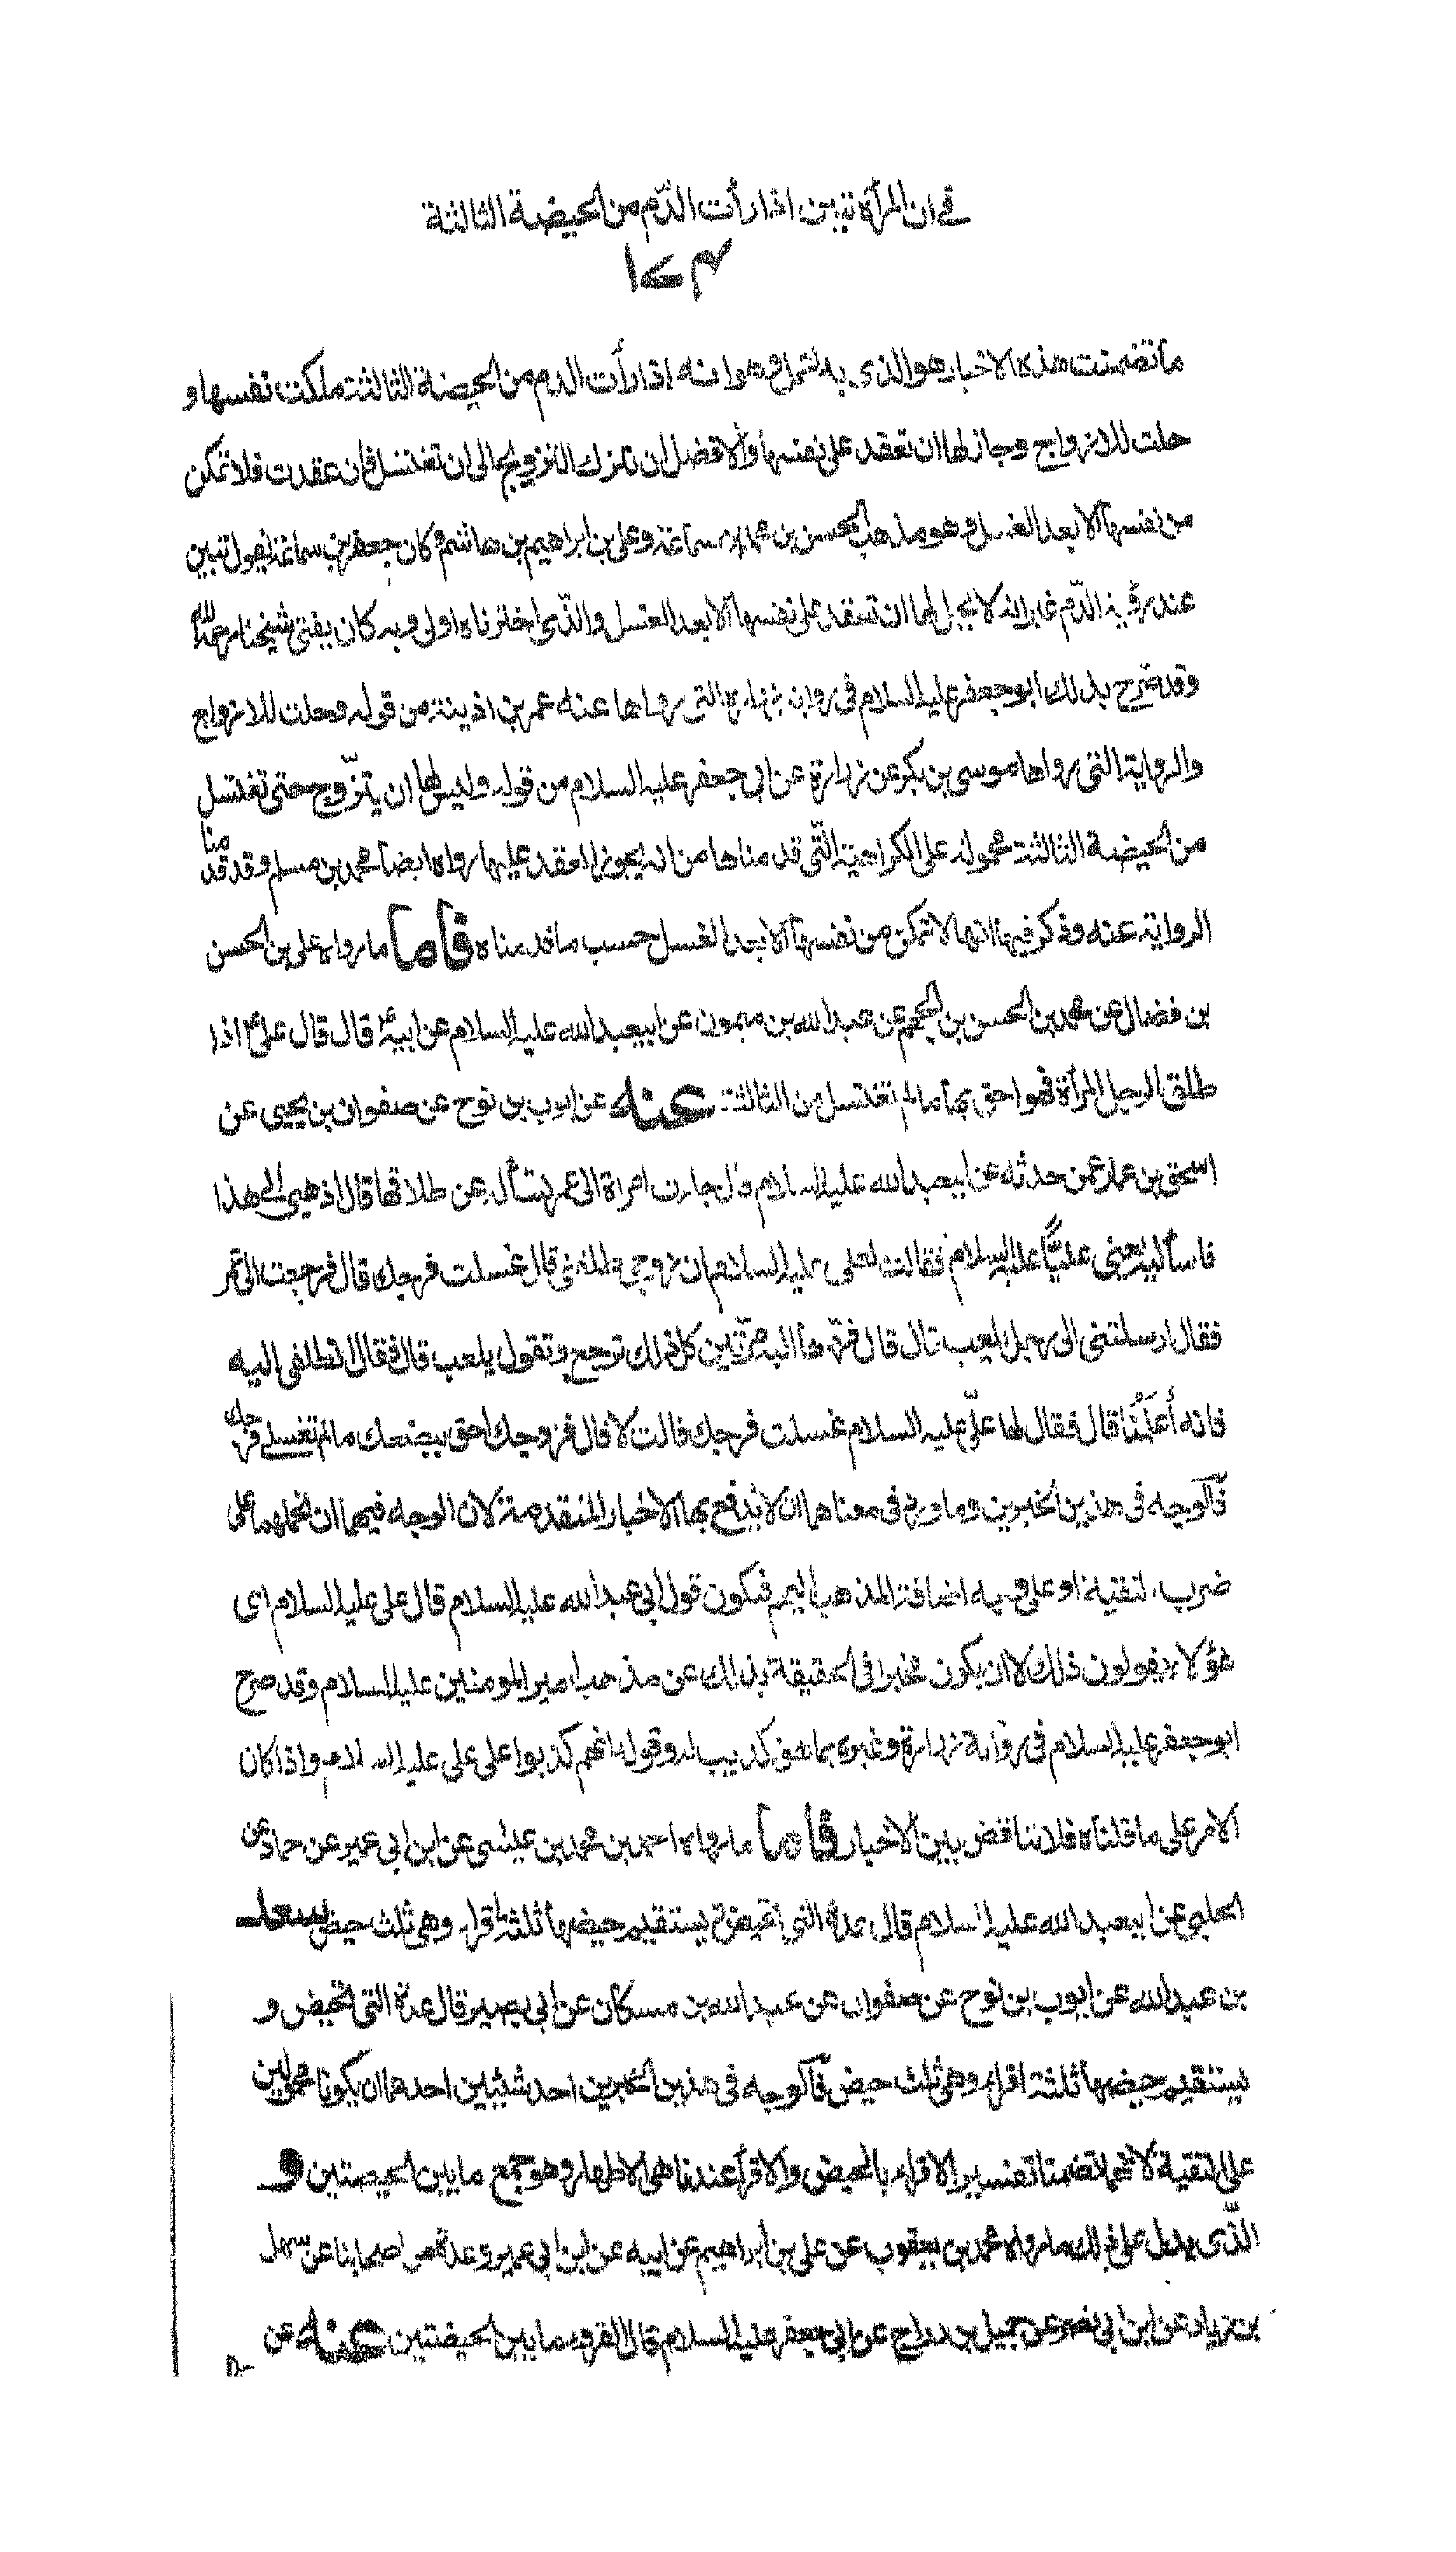 في ان المرأة تبين اذا رأت الدّم من الحيضة الثالثة
ما تضمنت هذه الاخبار هو الذى به اعمل وهو انه اذا رأت الدم من الحيضة الثالثة ملكت نفسها و
حلت للازواج وجاز لها ان تعقد على نفسها والافضل ان تترك التزويج الى ان تغتسل فان عقدت فلا تمكن
من نفسها الا بعد الغسل وهو مذهب الحسن بن سماعة وعلى بن ابراهيم بن هاشم وكان جعفر بن سماعة يقول تبين
عند رؤية الدّم غير انه لا يحل لها ان تعقد على نفسها الا بعد الغسل والذّى اخترناه اولى وبه كان يفتى شيخنا رحمه الله
وقد صّرح بذلك ابو جعفر عليه السلام فى رواية زرارة التى رواها عنه عمر بن اذينة من قوله وحلت للازواج
والرواية التى رواها موسى بن بكر عن زرارة عن ابى جعفر عليه السلام من قوله وليس لها ان يتزّوج حتى تغتسل
من الحيضة الثالثة محمولة على الكراهية التّى قدمناها من انه يجوز العقد عليها رواه ايضا محمد بن مسلم وقد قدمنا
الرواية عنه وذكر فيها انها لا تمكن من نفسها الا بعد الغسل حسب ما قدمناه فأما ما رواه على بن الحسن
بن فضال عن محمد بن الحسن بن الجهم عن عبد الله بن ميمون عن ابيعبد الله عليه السلام عن ابيه قال قال على اذا
طلق الرجل المرأة فهو احق بها ما لم تغتسل من الثالثة عنه عن ايوب بن نوح عن صفوان بن يحيى عن
اسحق بن عمار عمن حدثه عن ابيعبد الله عليه السلام قال جاءت امراة الى عمر تسأله عن طلاقها قال اذهبى الى هذا
فاسأليه يعنى عليًّا عليه السلام فقالت لعلى عليه السلام ان زوجى طلقنى قال غسلت فرجك قال فرجعت الى عمر
فقال ارسلتنى الى رجل يلعب قال قال فردّها اليه مرّتين كل ذلك ترجع وتقول يلعب قال فقال انطلقى اليه
فانه أعلَمُنا قال فقال لها علّى عليه السلام غسلت فرجك قالت لا قال فزوجك احق ببضعك ما لم تغسلى فرجك
فآلوجه فى هذين الخبرين وما ورد فى معناهما ان لا يدفع بها الاخبار المتقدمة لان الوجه فيهما ان نحملهما على
ضرب التقية او على وجه اضافة المذهب اليهم فيكون قول ابى عبد الله عليه السلام قال على عليه السلام اى
هؤلاء يقولون ذلك لا ان يكون مخبرا فى الحقيقة بذلك عن مذهب امير المومنين عليه السلام وقد صرح
ابو جعفر عليه السلام فى رواية زرارة وغيره بما هو تكذيب له وقوله انهم كذبوا على على عليه السلام واذا كان
الامر على ما قلناه فلا تناقض بين الاخبار فأما ما رواه احمد بن محمد بن عيسى عن ابن ابى عمير عن حماد عن
الحلبى عن ابيعبد الله عليه السلام قال عدة التى تحيض و يستقيم حيضها ثلثة اقراء وهى ثلث حيض سعد
بن عبد الله عن ايوب بن نوح عن صفوان عن عبد الله بن مسكان عن ابى بصير قال عدة التى تحيض و
يستقيم حيضها ثلثة اقراء وهى ثلث حيض فآلوجه فى هذين الخبرين احد شيئين احدهما ان يكونا محمولين
على التقية لانهما تضمنا تفسير الاقراء بالحيض والاقرأ عندنا هى الاطهار وهو جمع ما بين الحيضتين و
الذّى يدل على ذلك ما رواه محمد بن يعقوب عن على بن ابراهيم عن ابيه عن ابن ابى عمير وعدة من اصحابنا عن سهل
بن زياد عن ابن ابى نصر عن جميل بن دراج عن ابى جعفر عليه السلام قال القرء ما بين الحيضتين عنه عن